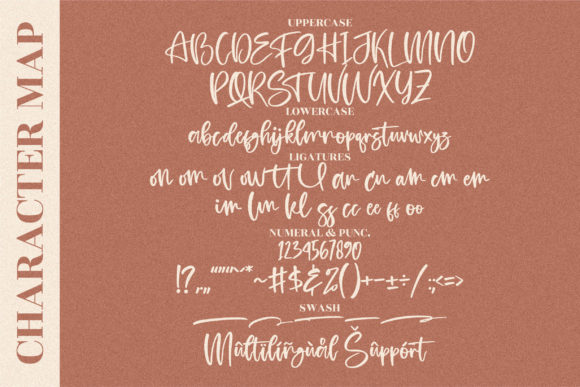 CHARACTER MAP
UPPERCASE
ABCDEFGHIJKLMNO
PQRSTUVWXYZ
LOWERCASE
abcdefghijklmnopqrstuvwxyz
LIGATURES
on om ov ow tt ll ar cn am cm em
im ln kl ss cc ee ff oo
NUMERAL & PUNC.
1234567890
!?,,„"""'~* ~#$&%()+-±÷/:;<=>
SWASH
Mûltïlíñgùål Šûppórt